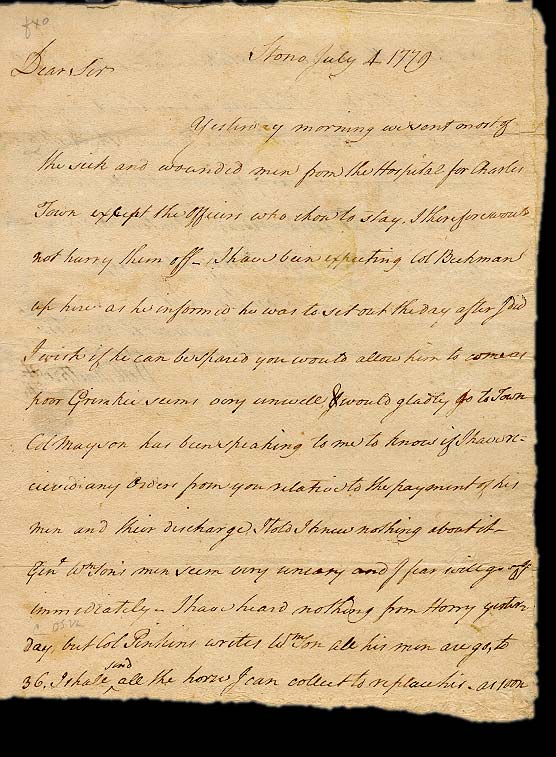 Stono July 4 1779
Dear Sir
Yesterday morning we sent most of
the sick and wounded men from the Hospital for Charles
Town except the officers who chose to stay. I therefore would
not hurry them off - I have been expecting Col Beekman
up here as he informd he was to set out the day after I did
I wish if he can be spared you would allow him to come as
poor Grimkie seems very unwell, & would gladly go to Town
Col Mayson has been speaking to me to know if I have re-
ceived any Orders from you relative to the payment of his
men and their discharge, I told I knew nothing about it -
Genl Wmson's men seem very uneasy and I fear will go off
immediately - I have heard nothing from Horry yester-
day, but Col Pinkins writes Wmson all his men are go, to
36. I shall send all the horse I can collect to replace his - as soon